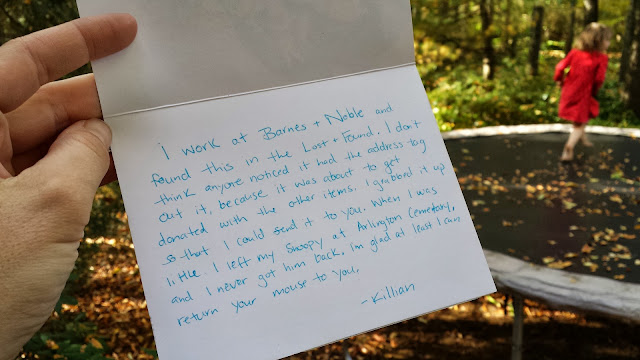 i work at Barnes + Noble and
found this in the Lost + Found. I don't
think anyone noticed it had the address tag
out it, because it was about to get
donated with the other items. I grabbed it up
so that I could send it to you. When I was
little I left my Snoopy at Arlington Cemetary,
and I never got him back, i'm glad at least I can
return your mouse to you.
-Killian